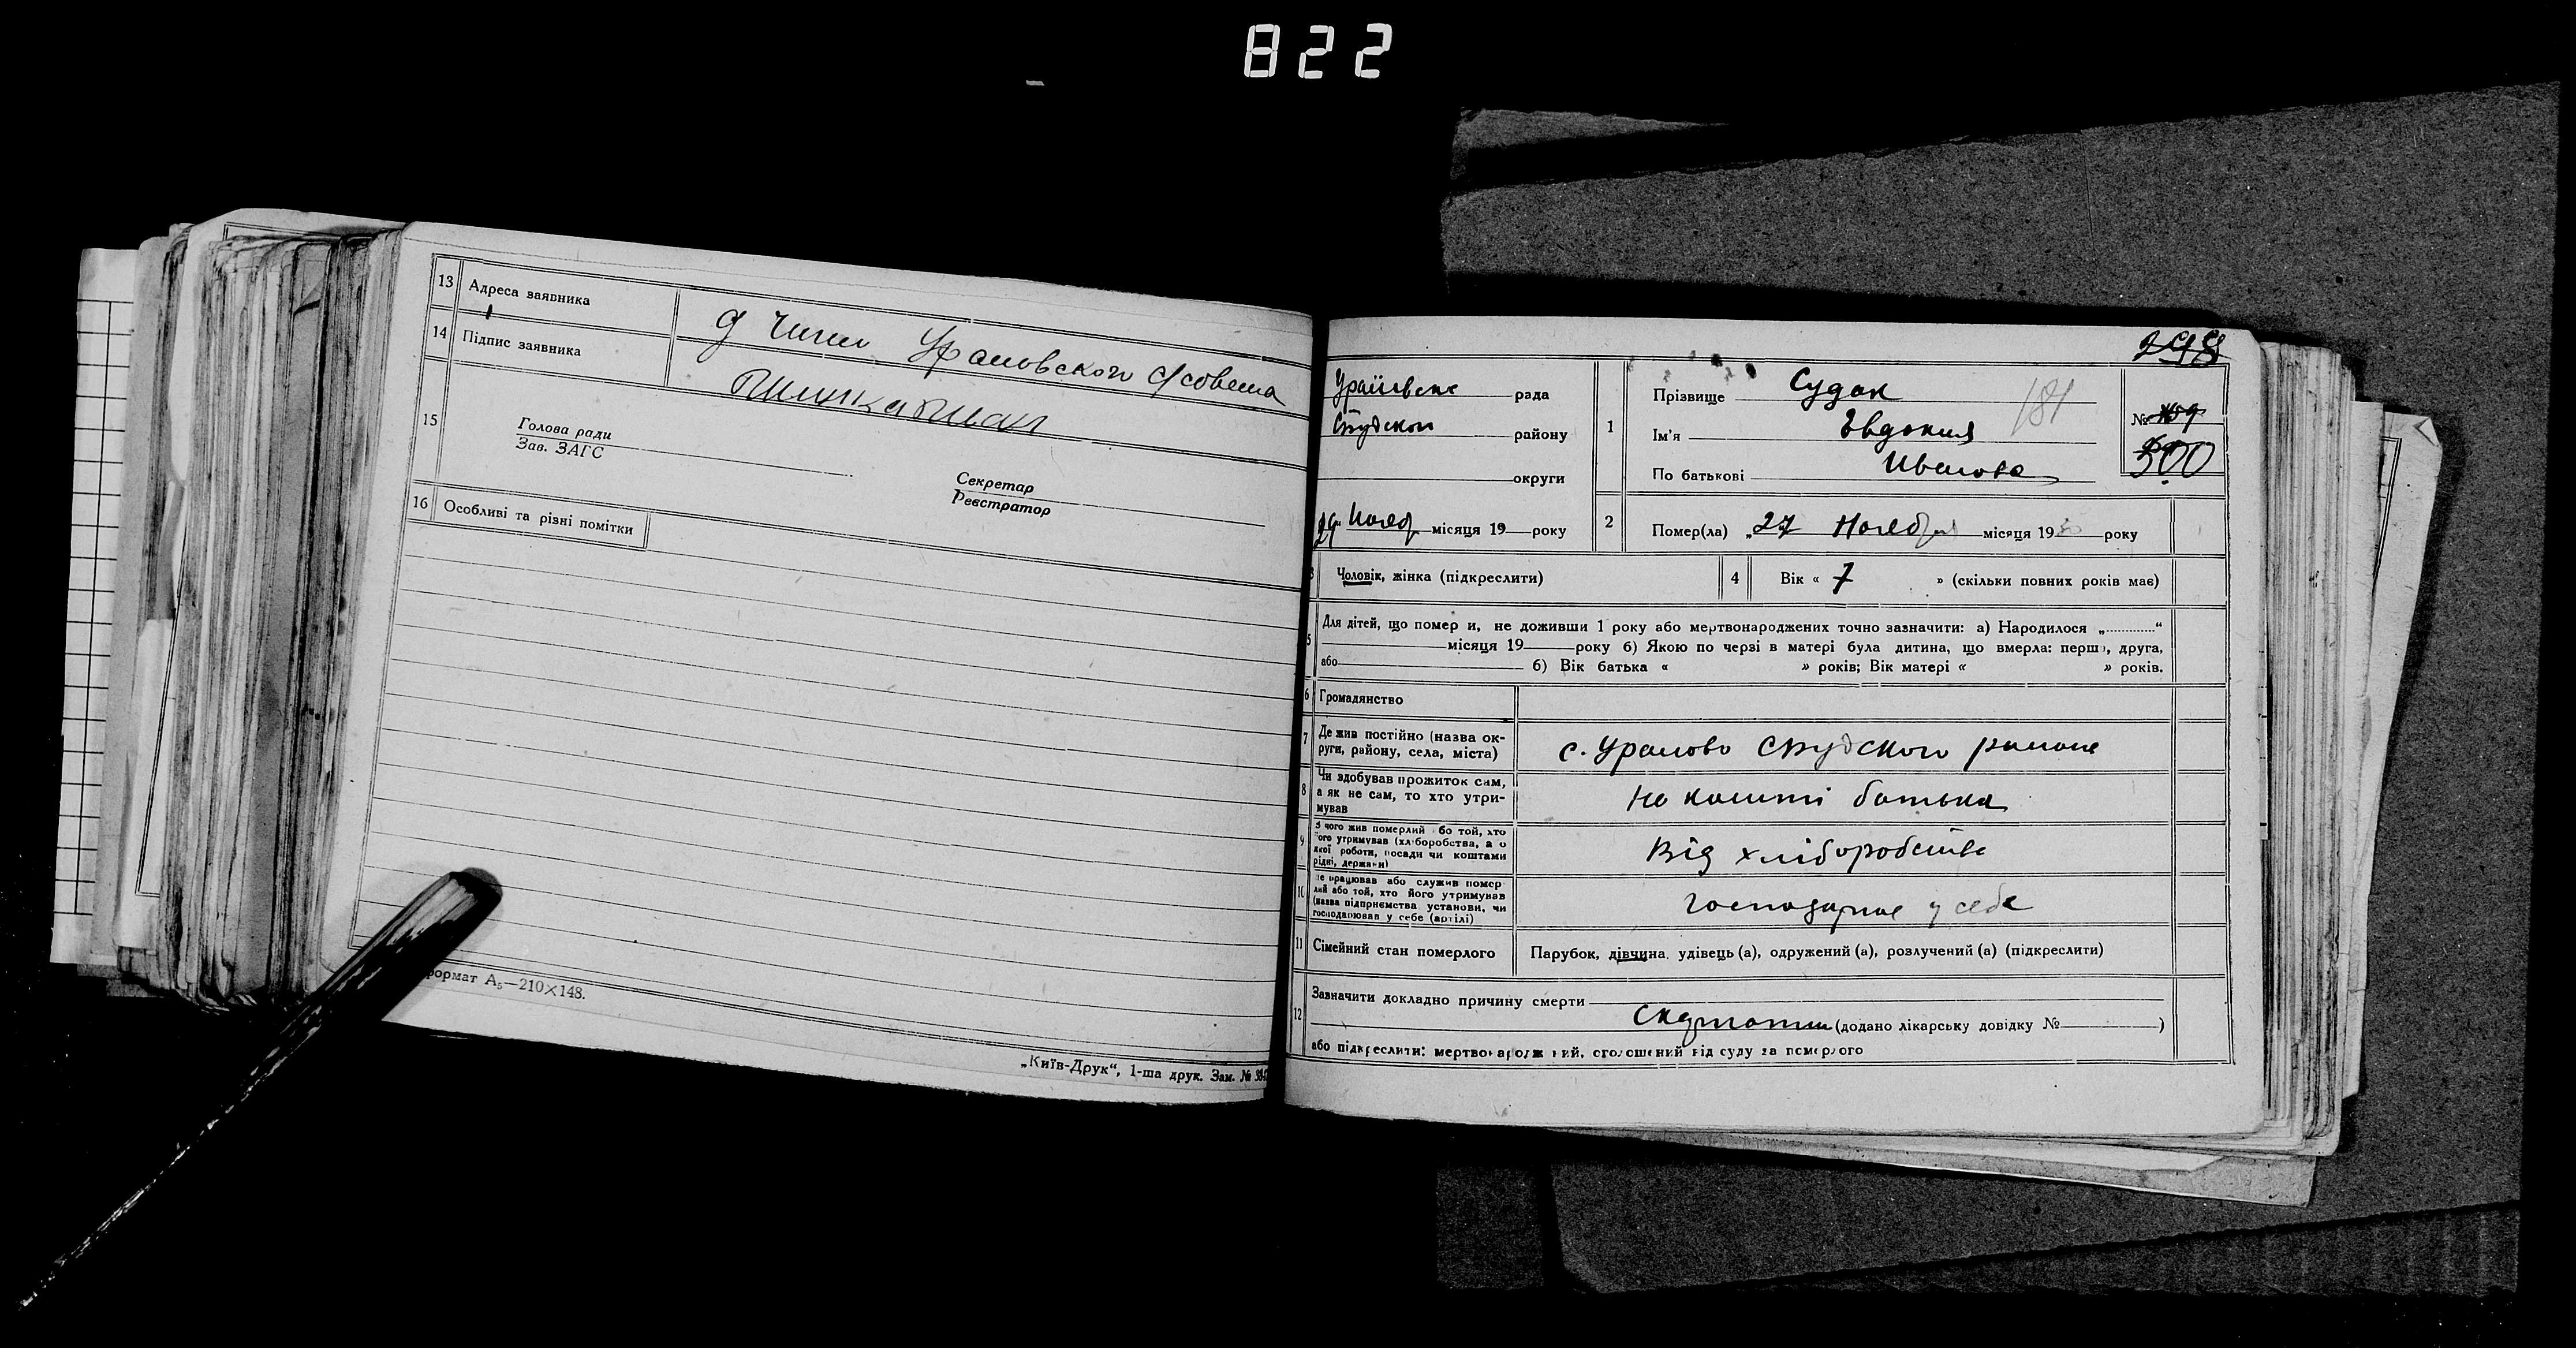 822
13 Адреса заявника
д Чигин Ураловского с/совета
14 Підпис заявника
15
Голова ради
Зав. ЗАГС
Секретар
Реєстратор
16 Особливі та різні помітки
формат А₅—210×148.
„Київ-Друк“, 1-ша друк. Зам. №
298
рада
району
округи
29 Нояб місяця 19 року
1
Прізвище Судак
Ім’я Евдокия 181
По батькові Иванова
№ 159
300
2 Помер(ла) „27 Ноября місяця 1930 року
3 Чоловік, жінка (підкреслити)
4 Вік « 7 » (скільки повних років має)
5 Для дітей, що помер и, не доживши 1 року або мертвонароджених точно зазначити: а) Народилося „............“
місяця 19 року б) Якою по черзі в матері була дитина, що вмерла: перша, друга,
або б) Вік батька « » років; Вік матері « » років.
6 Громадянство
7 Де жив постійно (назва ок-
руги, району, села, міста)
с. Уралово Студского района
8 Чи здобував прожиток сам,
а як не сам, то хто утри-
мував
На кошті батька
9 З чого жив померлий або той, хто
його утримував (хліборобства, а о
якої роботи, посади чи коштами
рідні, держави)
Від хліборобства
10 Де працював або служив помер
лий або той, хто його утримував
(назва підприємства установи, чи
господарював у себе (артілі)
господарює у себе
11 Сімейний стан померлого
Парубок, дівчина, удівець (а), одружений (а), розлучений (а) (підкреслити)
12 Зазначити докладно причину смерти
Скарлатини (додано лікарську довідку № )
або підкреслити: мертвонароджений, оголошений від суду за померлого